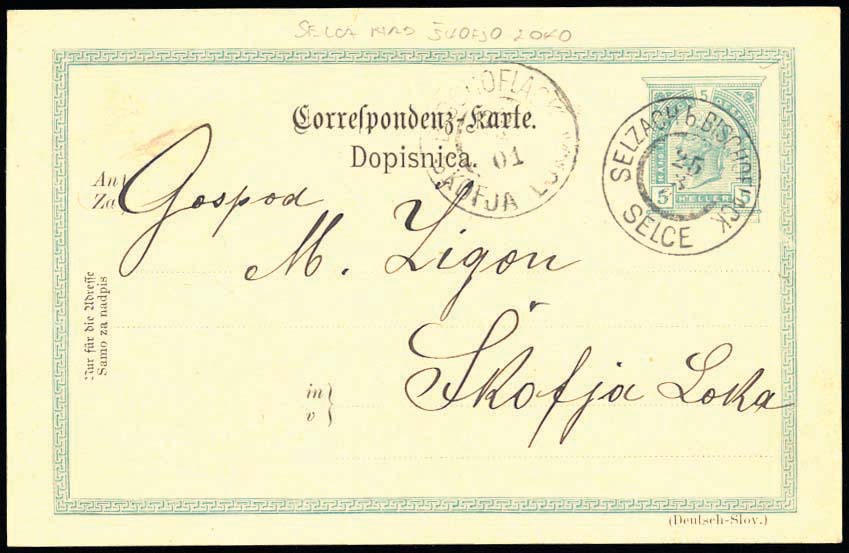 SELCA NAD ŠKOFJO LOKO
Correspondenz-Karte.
Dopisnica.
BISCHOFLACK
01
ŠKOFJA LOKA
5
HELLER
5 5
SELZACH b. BISCHOFLACK
25
SELCE
An
Za
Gospod
M. Žigon
Škofja Loka
in
v
Nur für die Adresse
Samo za nadpis
(Deutsch-Slov.)